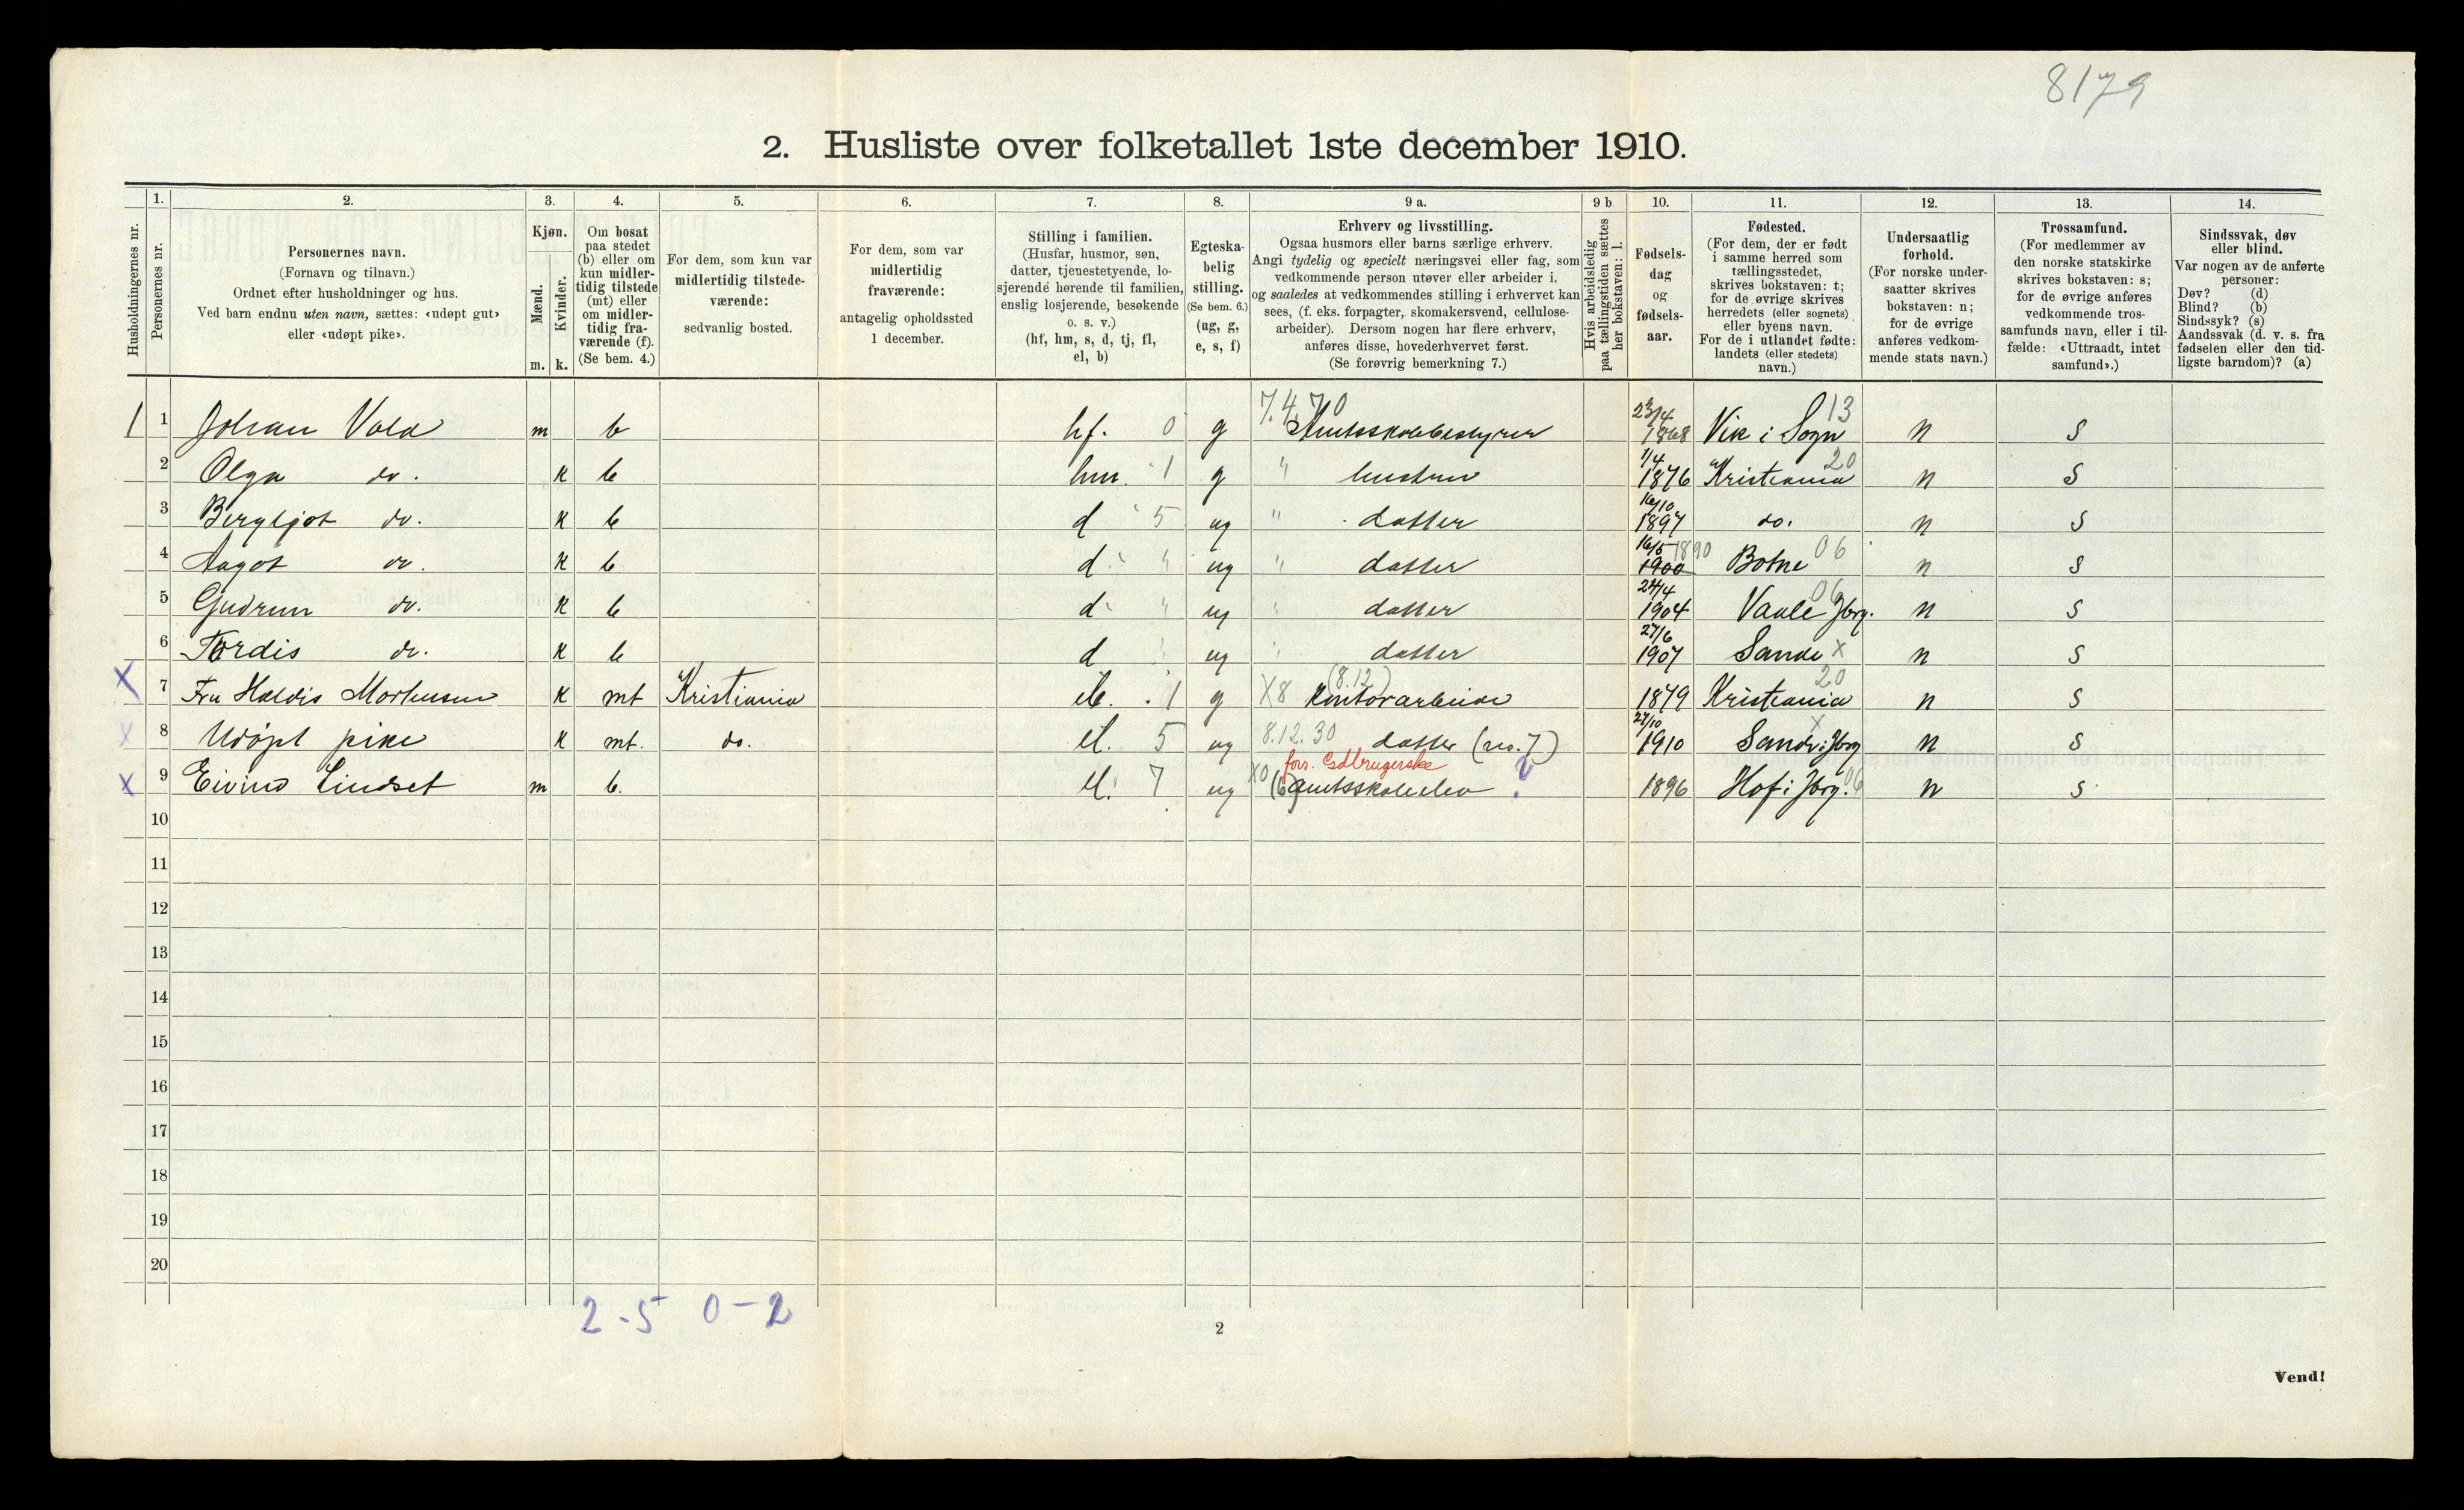 8179
2. Husliste over folketallet 1ste december 1910.
Husholdningernes nr.
1. Personernes nr.
2. Personernes navn.
(Fornavn og tilnavn.)
Ordnet efter husholdninger og hus.
Ved barn endnu uten navn, sættes: «udøpt gut»
eller «udøpt pike».
3. Kjøn.
Mænd. Kvinder.
m. k.
4. Om bosat
paa stedet
(b) eller om
kun midler-
tidig tilstede
(mt) eller
om midler-
tidig fra-
værende (f).
(Se bem. 4.)
5. For dem, som kun var
midlertidig tilstede-
værende:
sedvanlig bosted.
6. For dem, som var
midlertidig
fraværende:
antagelig opholdssted
1 december.
7. Stilling i familien.
(Husfar, husmor, søn,
datter, tjenestetyende, lo-
sjerende hørende til familien,
enslig losjerende, besøkende
o. s. v.)
(hf, hm, s, d, tj, fl,
el, b)
8. Egteska-
belig
stilling.
(Se bem. 6.)
(ug, g,
e, s, f)
9 a. Erhverv og livsstilling.
Ogsaa husmors eller barns særlige erhverv.
Angi tydelig og specielt næringsvei eller fag, som
vedkommende person utøver eller arbeider i,
og saaledes at vedkommendes stilling i erhvervet kan
sees, (f. eks. forpagter, skomakersvend, cellulose-
arbeider). Dersom nogen har flere erhverv,
anføres disse, hovederhvervet først.
(Se forøvrig bemerkning 7.)
9 b Hvis arbeidsledig
paa tællingstiden sættes
her bokstaven: l.
10. Fødsels-
dag
og
fødsels-
aar.
11. Fødested.
(For dem, der er født
i samme herred som
tællingsstedet,
skrives bokstaven: t;
for de øvrige skrives
herredets (eller sognets)
eller byens navn.
For de i utlandet fødte:
landets (eller stedets)
navn.)
12. Undersaatlig
forhold.
(For norske under-
saatter skrives
bokstaven: n;
for de øvrige
anføres vedkom-
mende stats navn.)
13. Trossamfund.
(For medlemmer av
den norske statskirke
skrives bokstaven: s;
for de øvrige anføres
vedkommende tros-
samfunds navn, eller i til-
fælde: «Uttraadt, intet
samfund».)
14. Sindssvak, døv
eller blind.
Var nogen av de anførte
personer:
Døv? (d)
Blind? (b)
Sindssyk? (s)
Aandssvak (d. v. s. fra
fødselen eller den tid-
ligste barndom)? (a)
1 1 Johan Vold m b hf. 0 g 7.4.70 Amtsskolebestyrer 23/4 1868 Vik i Sogn 13 n s
2 Olga do. k b hm. 1 g " hustru 1/4 1876 Kristiania 20 n s
3 Bergljot do. k b d 5 ug " datter 16/10 1897 do. n s
4 Aagot do. k b d " ug " datter 16/5 1890 1900 Botne 06 n s
5 Gudrun do. k b d " ug " datter 24/4 1904 Vaale Jbrg. 06 n s
6 Tordis do. k b d " ug " datter 27/6 1907 Sande x n s
X 7 Fru Haldis Mortensen k mt Kristiania el. 1 g X8 (8.12) Kontorarbeide 1879 Kristiania 20 n s
X 8 Udøpt pike k mt. do. el. 5 ug 8.12.30 datter (no. 7) 27/10 1910 Sande i Jbrg x n s
X 9 Eivind Lindset m b. el. 7 ug X0 (6) fors. Gdbrugerske amtsskoleelev ? 1896 Hof i Jbrg. 06 n s
10
11
12
13
14
15
16
17
18
19
20
2 - 5 0 - 2
2
Vend!